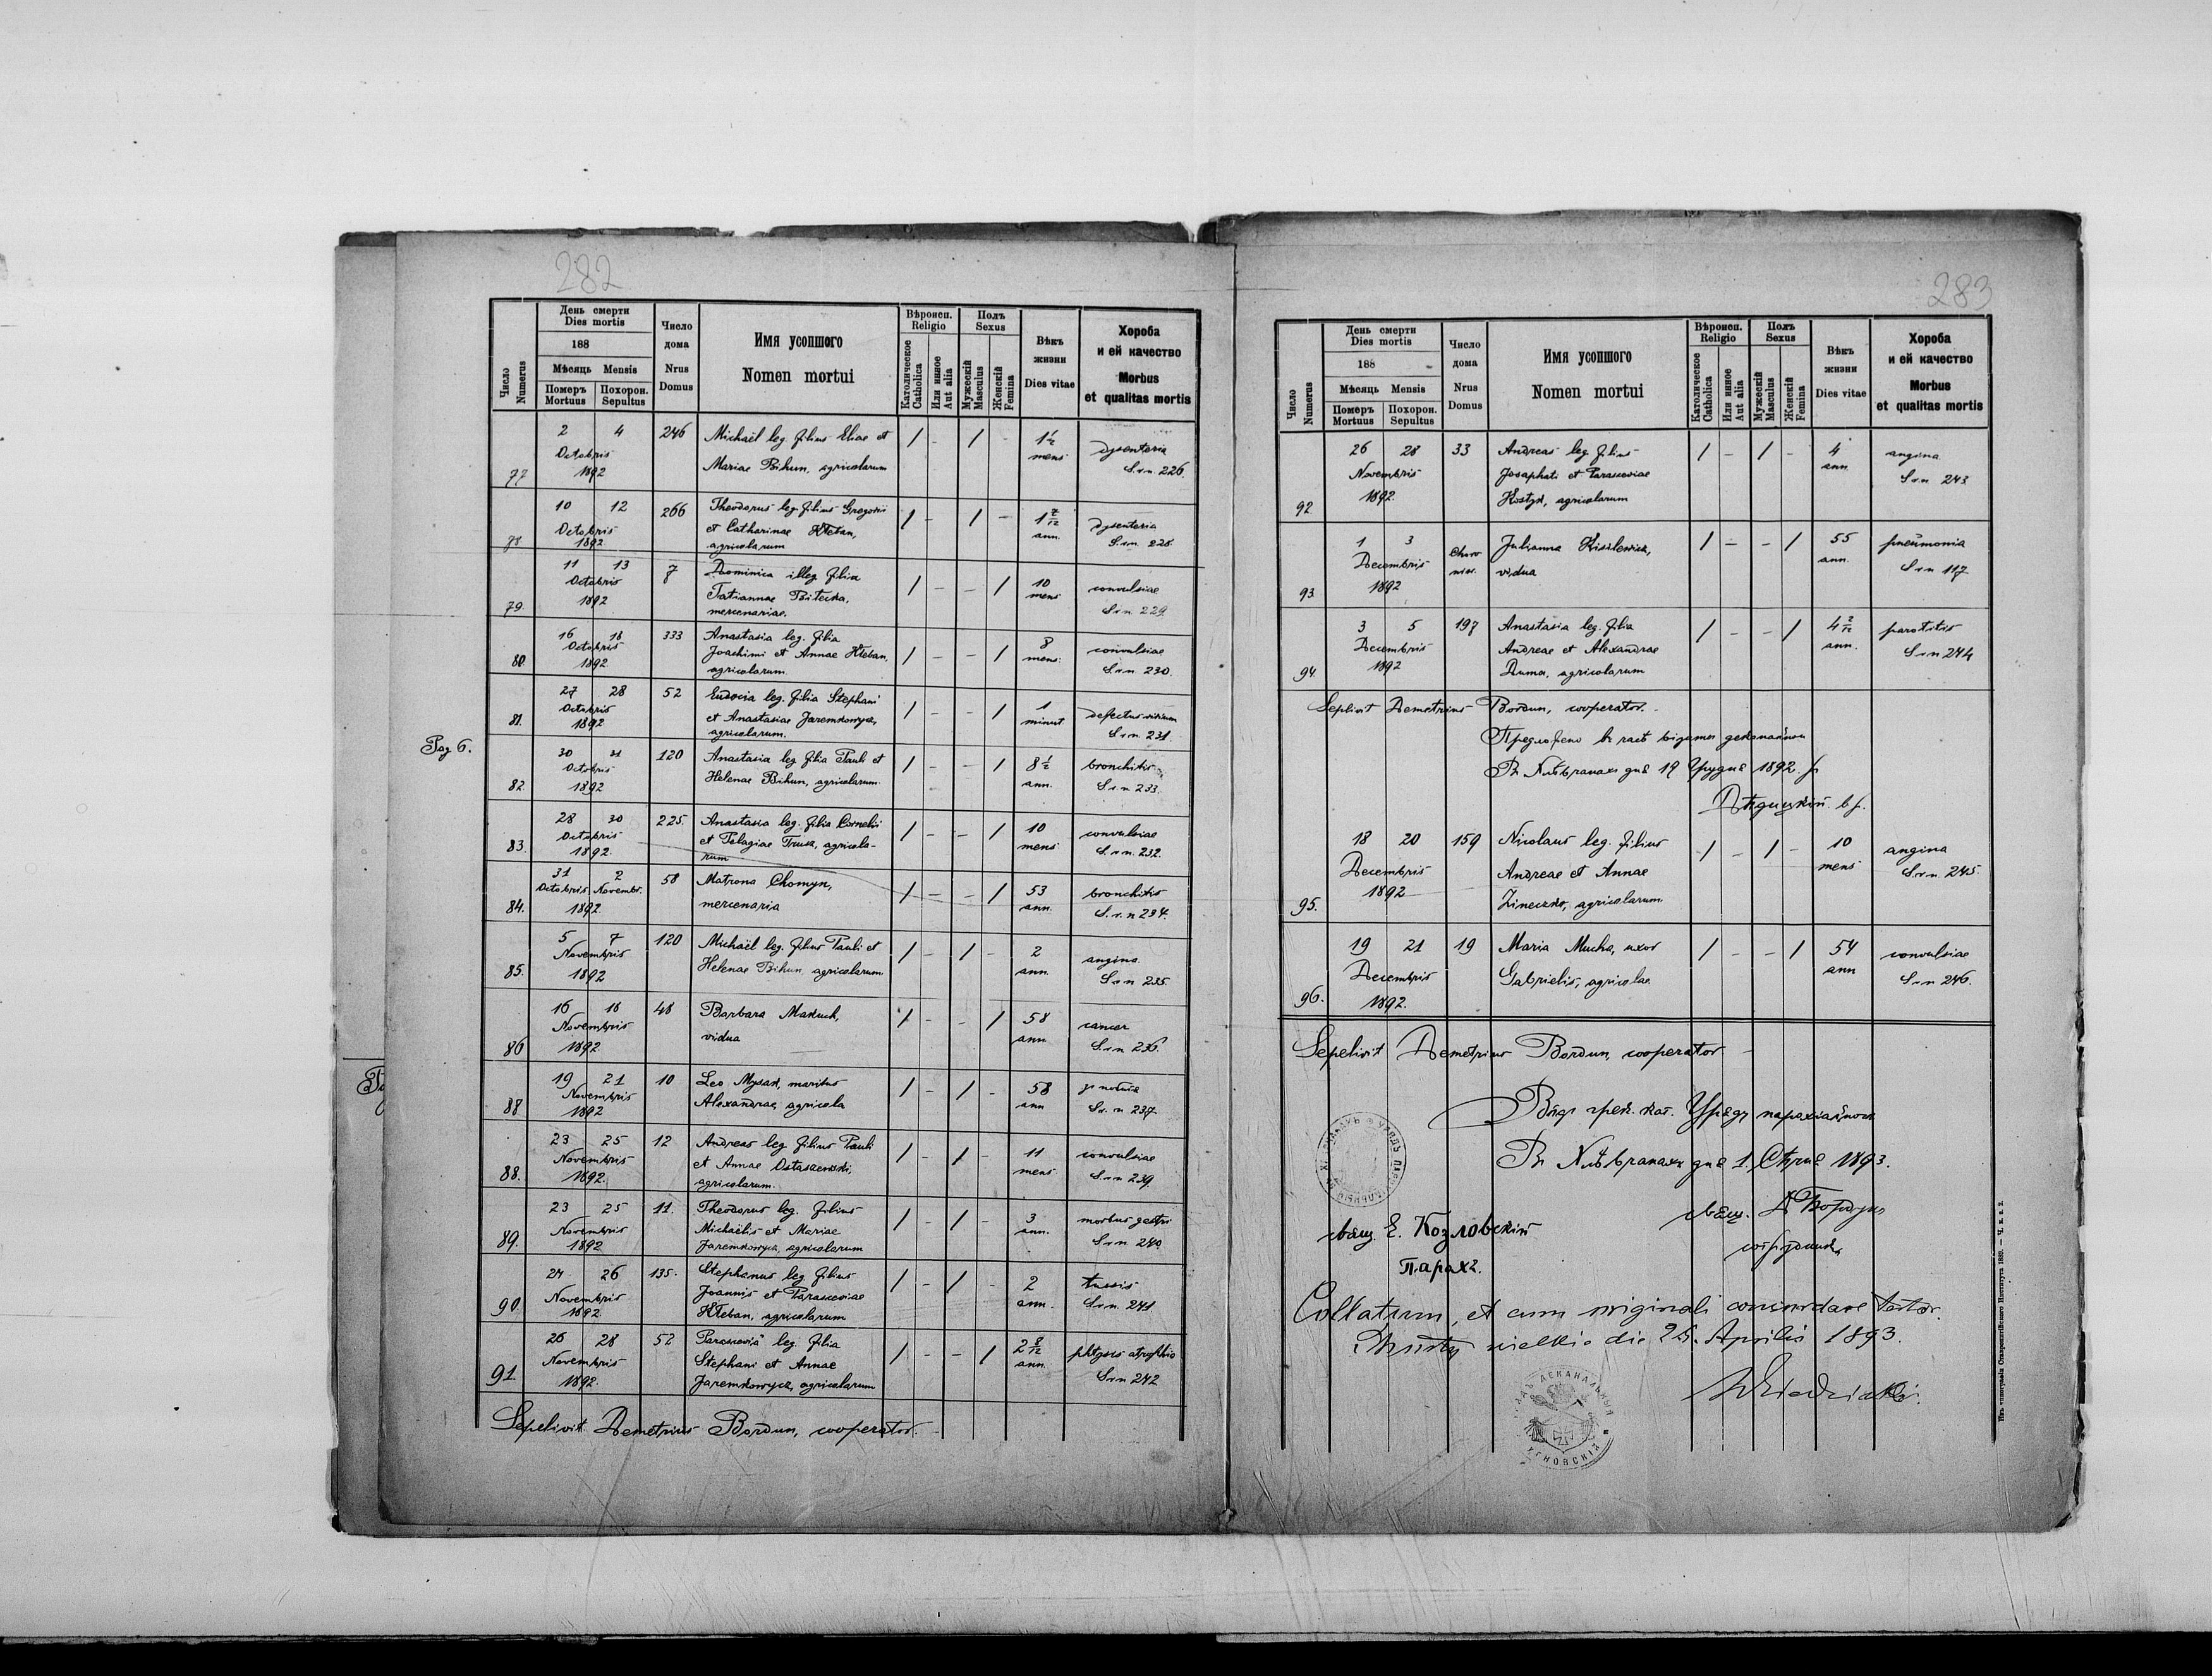 282
Число
Numerus
День смерти
Dies mortis
188
Мѣсяць Mensis
Померъ
Mortuus
Похорон.
Sepultus
Число
дома
Nrus
Domus
Имя усопшого
Nomen mortui
Вѣроисп.
Religio
Католическое
Catholica
Или инное
Aut alia
Полъ
Sexus
Мужескій
Masculus
Женскій
Femina
Вѣкъ
жизни
Dies vitae
Хороба
и ей качество
Morbus
et qualitas mortis
77
2 4
Octobris
1892
246
Michaël leg. filius Eliae et
Mariae Bihun, agricolarum
/ - / -
1½
mens
dysenteria
S.v.n. 226.
78
10 12
Octobris
1892
266
Theodorus leg. filius Gregorii
et Catharinae Hłeban,
agricolarum
/ - / -
1 7/12
ann.
dysenteria
S.v.n. 228.
79.
11 13
Octobris
1892
7
Dominica illeg. filia
Tatiannae Bitecka,
mercenariae.
/ - - /
10
mens
convulsiae
S.v.n. 229
80
16 18
Octobris
1892
333
Anastasia leg. filia
Joachimi et Annae Hłeban,
agricolarum.
/ - - /
8
mens.
convulsiae
S.v.n. 230.
81.
27 28
Octobris
1892
52
Eudocia leg. filia Stephani
et Anastasiae Jaremkowycz,
agricolarum.
/ - - /
1
minut
defectus virium
S.v.n. 231.
Pag 6.
82
30 31
Octobris
1892
120
Anastasia leg. filia Pauli et
Helenae Bihun, agricolarum.
/ - - /
8½
ann.
bronchitis
S.v.n. 233.
83.
28 30
Octobris
1892.
225.
Anastasia leg. filia Cornelii
et Pelagiae Trusz, agricola-
rum
/ - - /
10
mens
convulsiae
S.v.n. 232.
84.
31 2
Octobris Novembr.
1892.
58
Matrona Chomyn,
mercenaria
/ - - /
53
ann.
bronchitis
S.v.n 234.
85.
5 7
Novembris
1892
120
Michaël leg. filius Pauli et
Helenae Bihun, agricolarum
/ - / -
2
ann.
angina
S.v.n 235.
86
16 18
Novembris
1892
48
Barbara Makuch,
vidua
/ - - /
58
ann
cancer
S.v.n 236.
88
19 21
Novembris
1892
10
Leo Mysak, maritus
Alexandrae, agricola
/ - / -
58
ann
S.v.n 237.
88.
23 25
Novembris
1892.
12
Andreas leg. filius Pauli
et Annae Ostaszewski,
agricolarum.
/ - / -
11
mens
convulsiae
S.v.n 239.
89.
23 25
Novembris
1892
11.
Theodorus leg. filius
Michaëlis et Mariae
Jaremkowycz, agricolarum
/ - / -
3
ann.
morbus gastri
S.v.n. 240
90
24 26
Novembris
1892
135.
Stephanus leg. filius
Joannis et Parasceviae
Hłeban, agricolarum
/ - / -
2
ann.
tussis
S.v.n. 241
91
26 28
Novembris
1892.
52
Parascevia leg. filia
Stephani et Annae
Jaremkowycz, agricolarum
/ - - /
2 8/12
ann.
phtysis
S.v.n 242
Sepelivit Demetrius Bordun, cooperator.
283
Число
Numerus
День смерти
Dies mortis
188
Мѣсяць Mensis
Померъ
Mortuus
Похорон.
Sepultus
Число
дома
Nrus
Domus
Имя усопшого
Nomen mortui
Вѣроисп.
Religio
Католическое
Catholica
Или инное
Aut alia
Полъ
Sexus
Мужескій
Masculus
Женскій
Femina
Вѣкъ
жизни
Dies vitae
Хороба
и ей качество
Morbus
et qualitas mortis
92.
26 28
Novembris
1892.
33
Andreas leg. filius
Josaphati et Parasceviae
Kostyk, agricolarum
/ - / -
4
ann
angina
S.v.n 243
93.
1 3
Decembris
1892
Julianna Kisilewicz,
vidua
/ - - /
55
ann.
pneumonia
S.v.n 117
94.
3 5
Decembris
1892
197
Anastasia leg. filia
Andreae et Alexandrae
Duma, agricolarum
/ - - /
4 2/12
ann.
parotitis
S.v.n 244
Sepelivit Demetrius Bordun, cooperator.
дня 19 Грудня 1892. р
95.
18 20
Decembris
1892
159
Nicolaus leg. filius
Andreae et Annae
Zineczko, agricolarum.
/ - / -
10
mens
angina
S.v.n 245.
96.
19 21
Decembris
1892.
19
Maria Mucha, uxor
Gabrielis, agricolae
/ - - /
54
ann
convulsiae
S.v.n 246.
Sepelivit Demetrius Bordun, cooperator
Вôдъ грек. кат. Уряду парохіального
дня 1 Стрня 1893.
свящ. Е. Козловскій
Парохъ.
свящ. Д Бордун
сотрудникъ
Collatum, et cum originali concordare testor.
wielkie die 25. Aprilis 1893.
ДЕКАНАЛЬНЫЙ